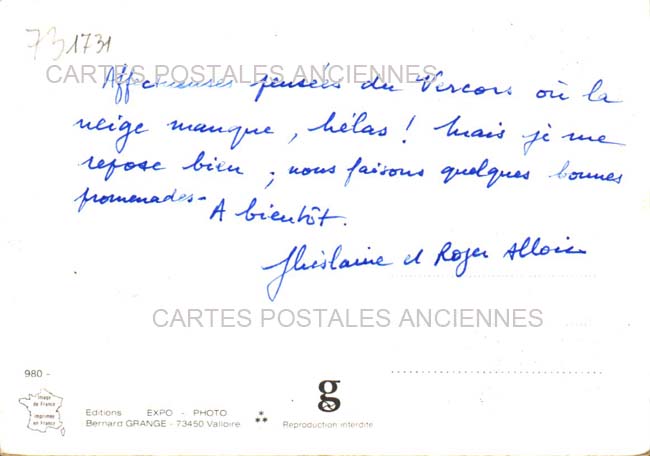 73 1731
CARTES POSTALES ANCIENNES
Affectueuses pensées du Vercors où la
neige manque, hélas! Mais je me
repose bien; nous faisons quelques bonnes
promenades.
A bientôt.
Ghislaine et Roger
CARTES POSTALES ANCIENNES
980 -
image
de France
imprimée
en France
Editions EXPO - PHOTO
Bernard GRANGE - 73450 Valloire
g
Reproduction interdite